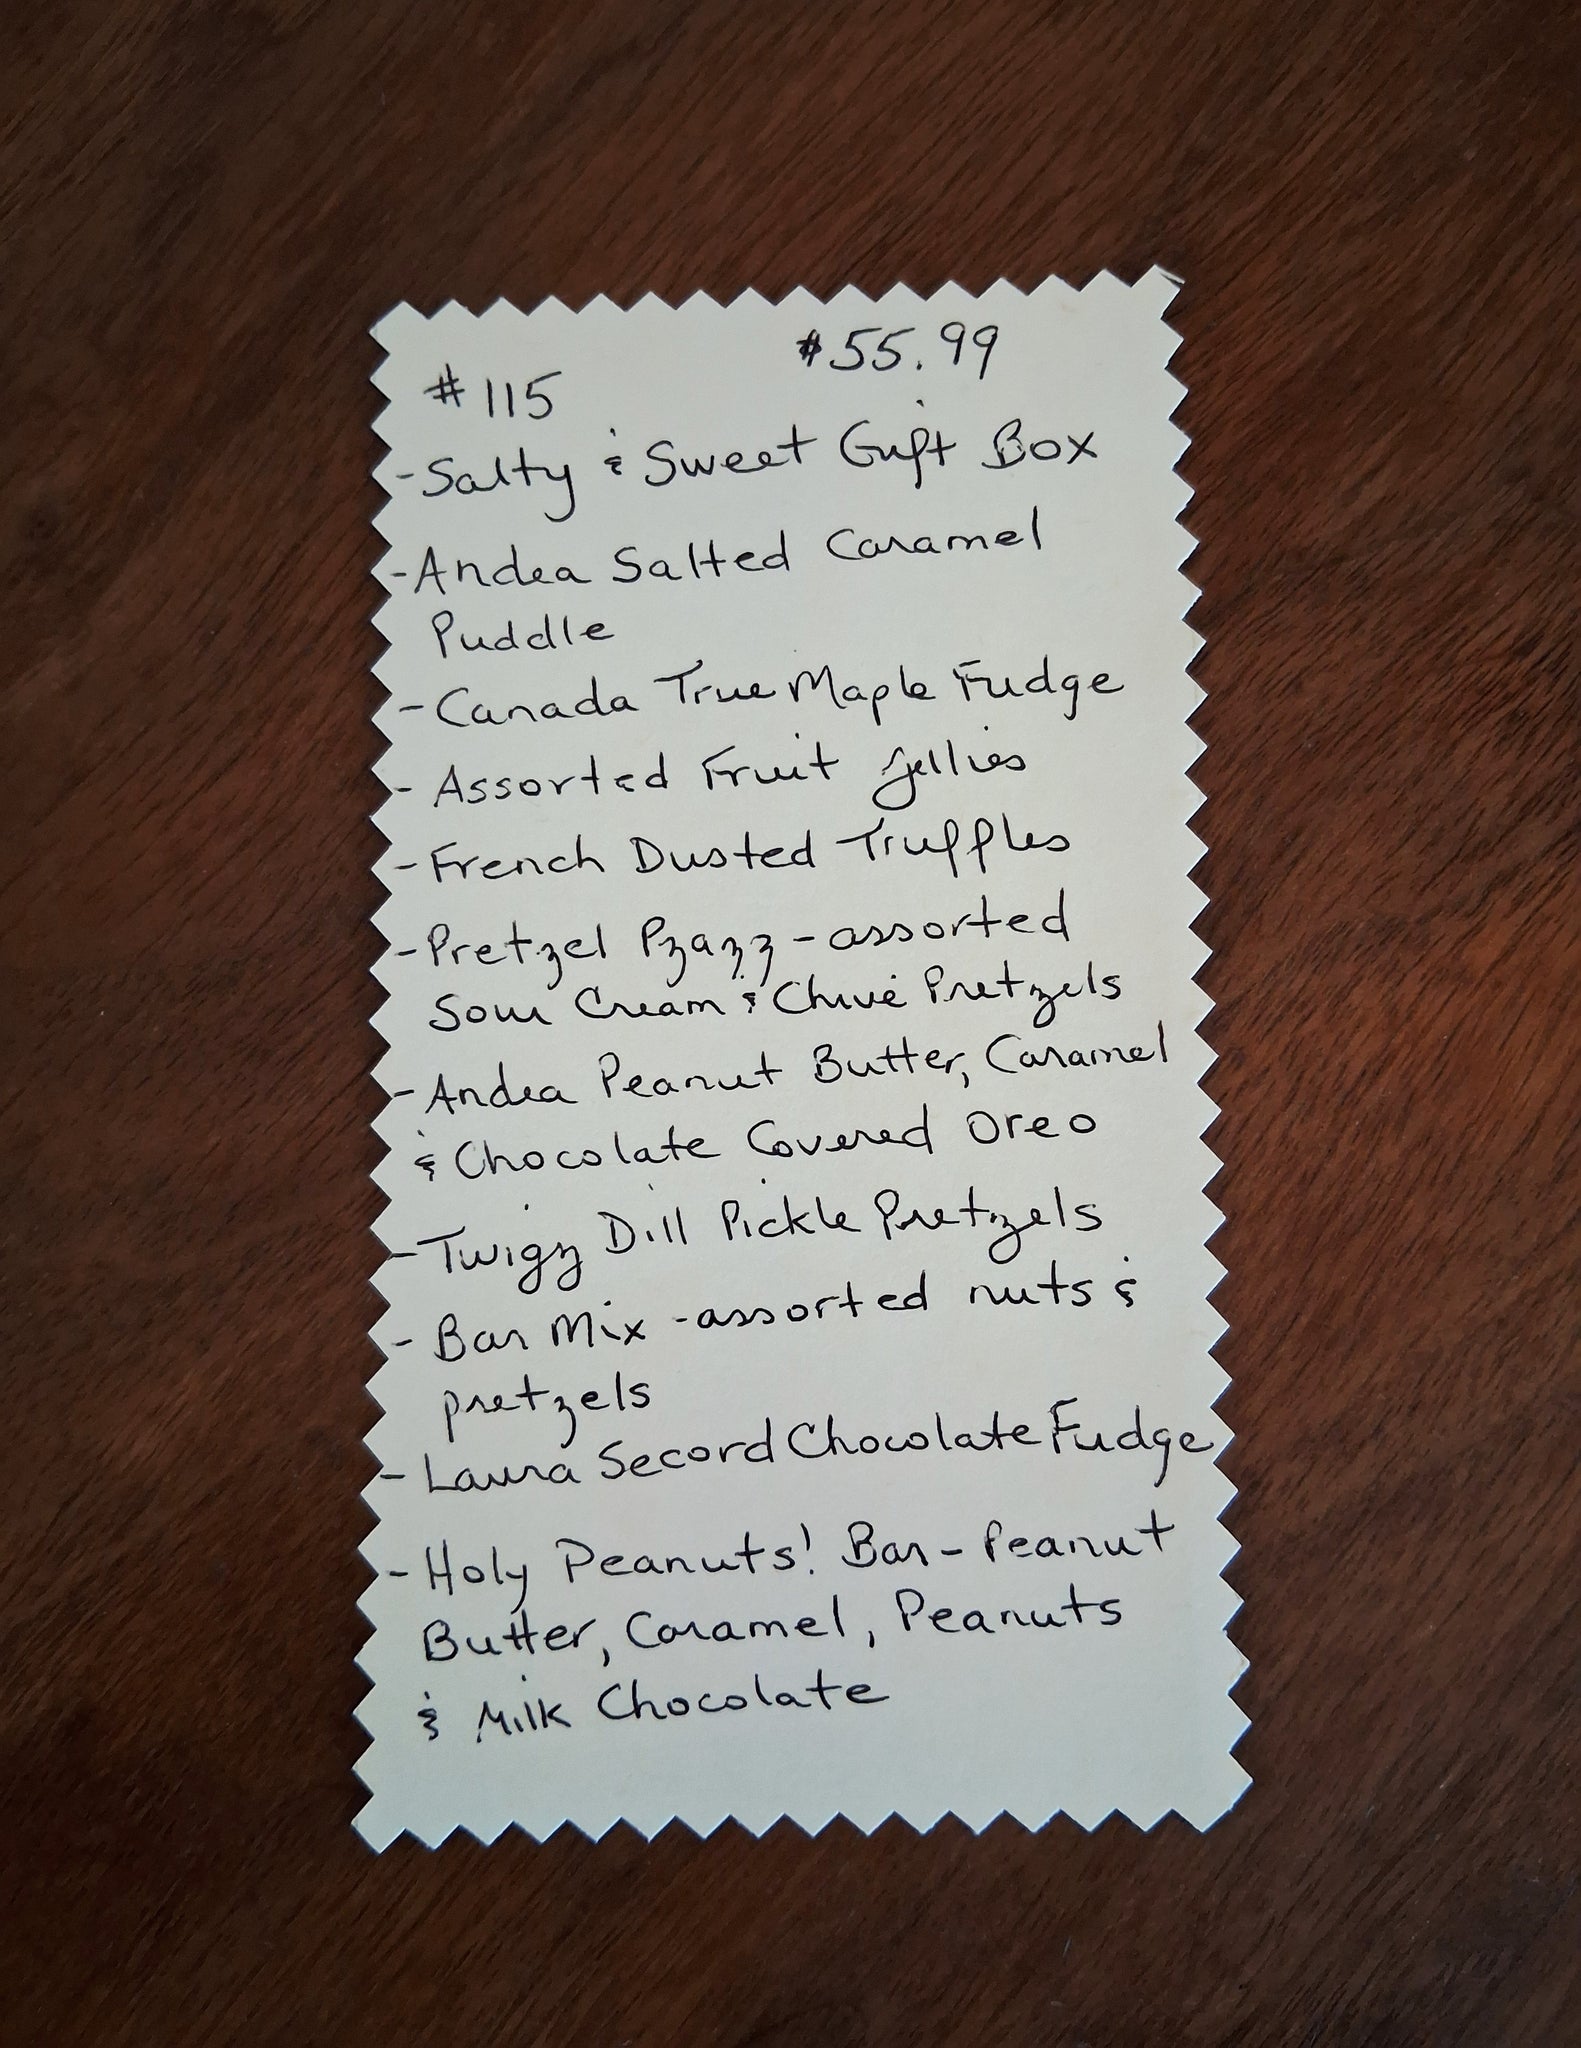 $55.99
#115
-Salty & Sweet Gift Box
-Andea Salted Caramel
Puddle
-Canada True Maple Fudge
-Assorted Fruit Jellies
-French Dusted Truffles
-Pretzel Pzazz-assorted
Sour Cream & Chive Pretzels
-Andea Peanut Butter, Caramel
& Chocolate Covered Oreo
-Twigz Dill Pickle Pretzels
-Bar Mix-assorted nuts &
pretzels
-Laura Secord Chocolate Fudge
-Holy Peanuts! Bar-Peanut
Butter, Caramel, Peanuts
& Milk Chocolate